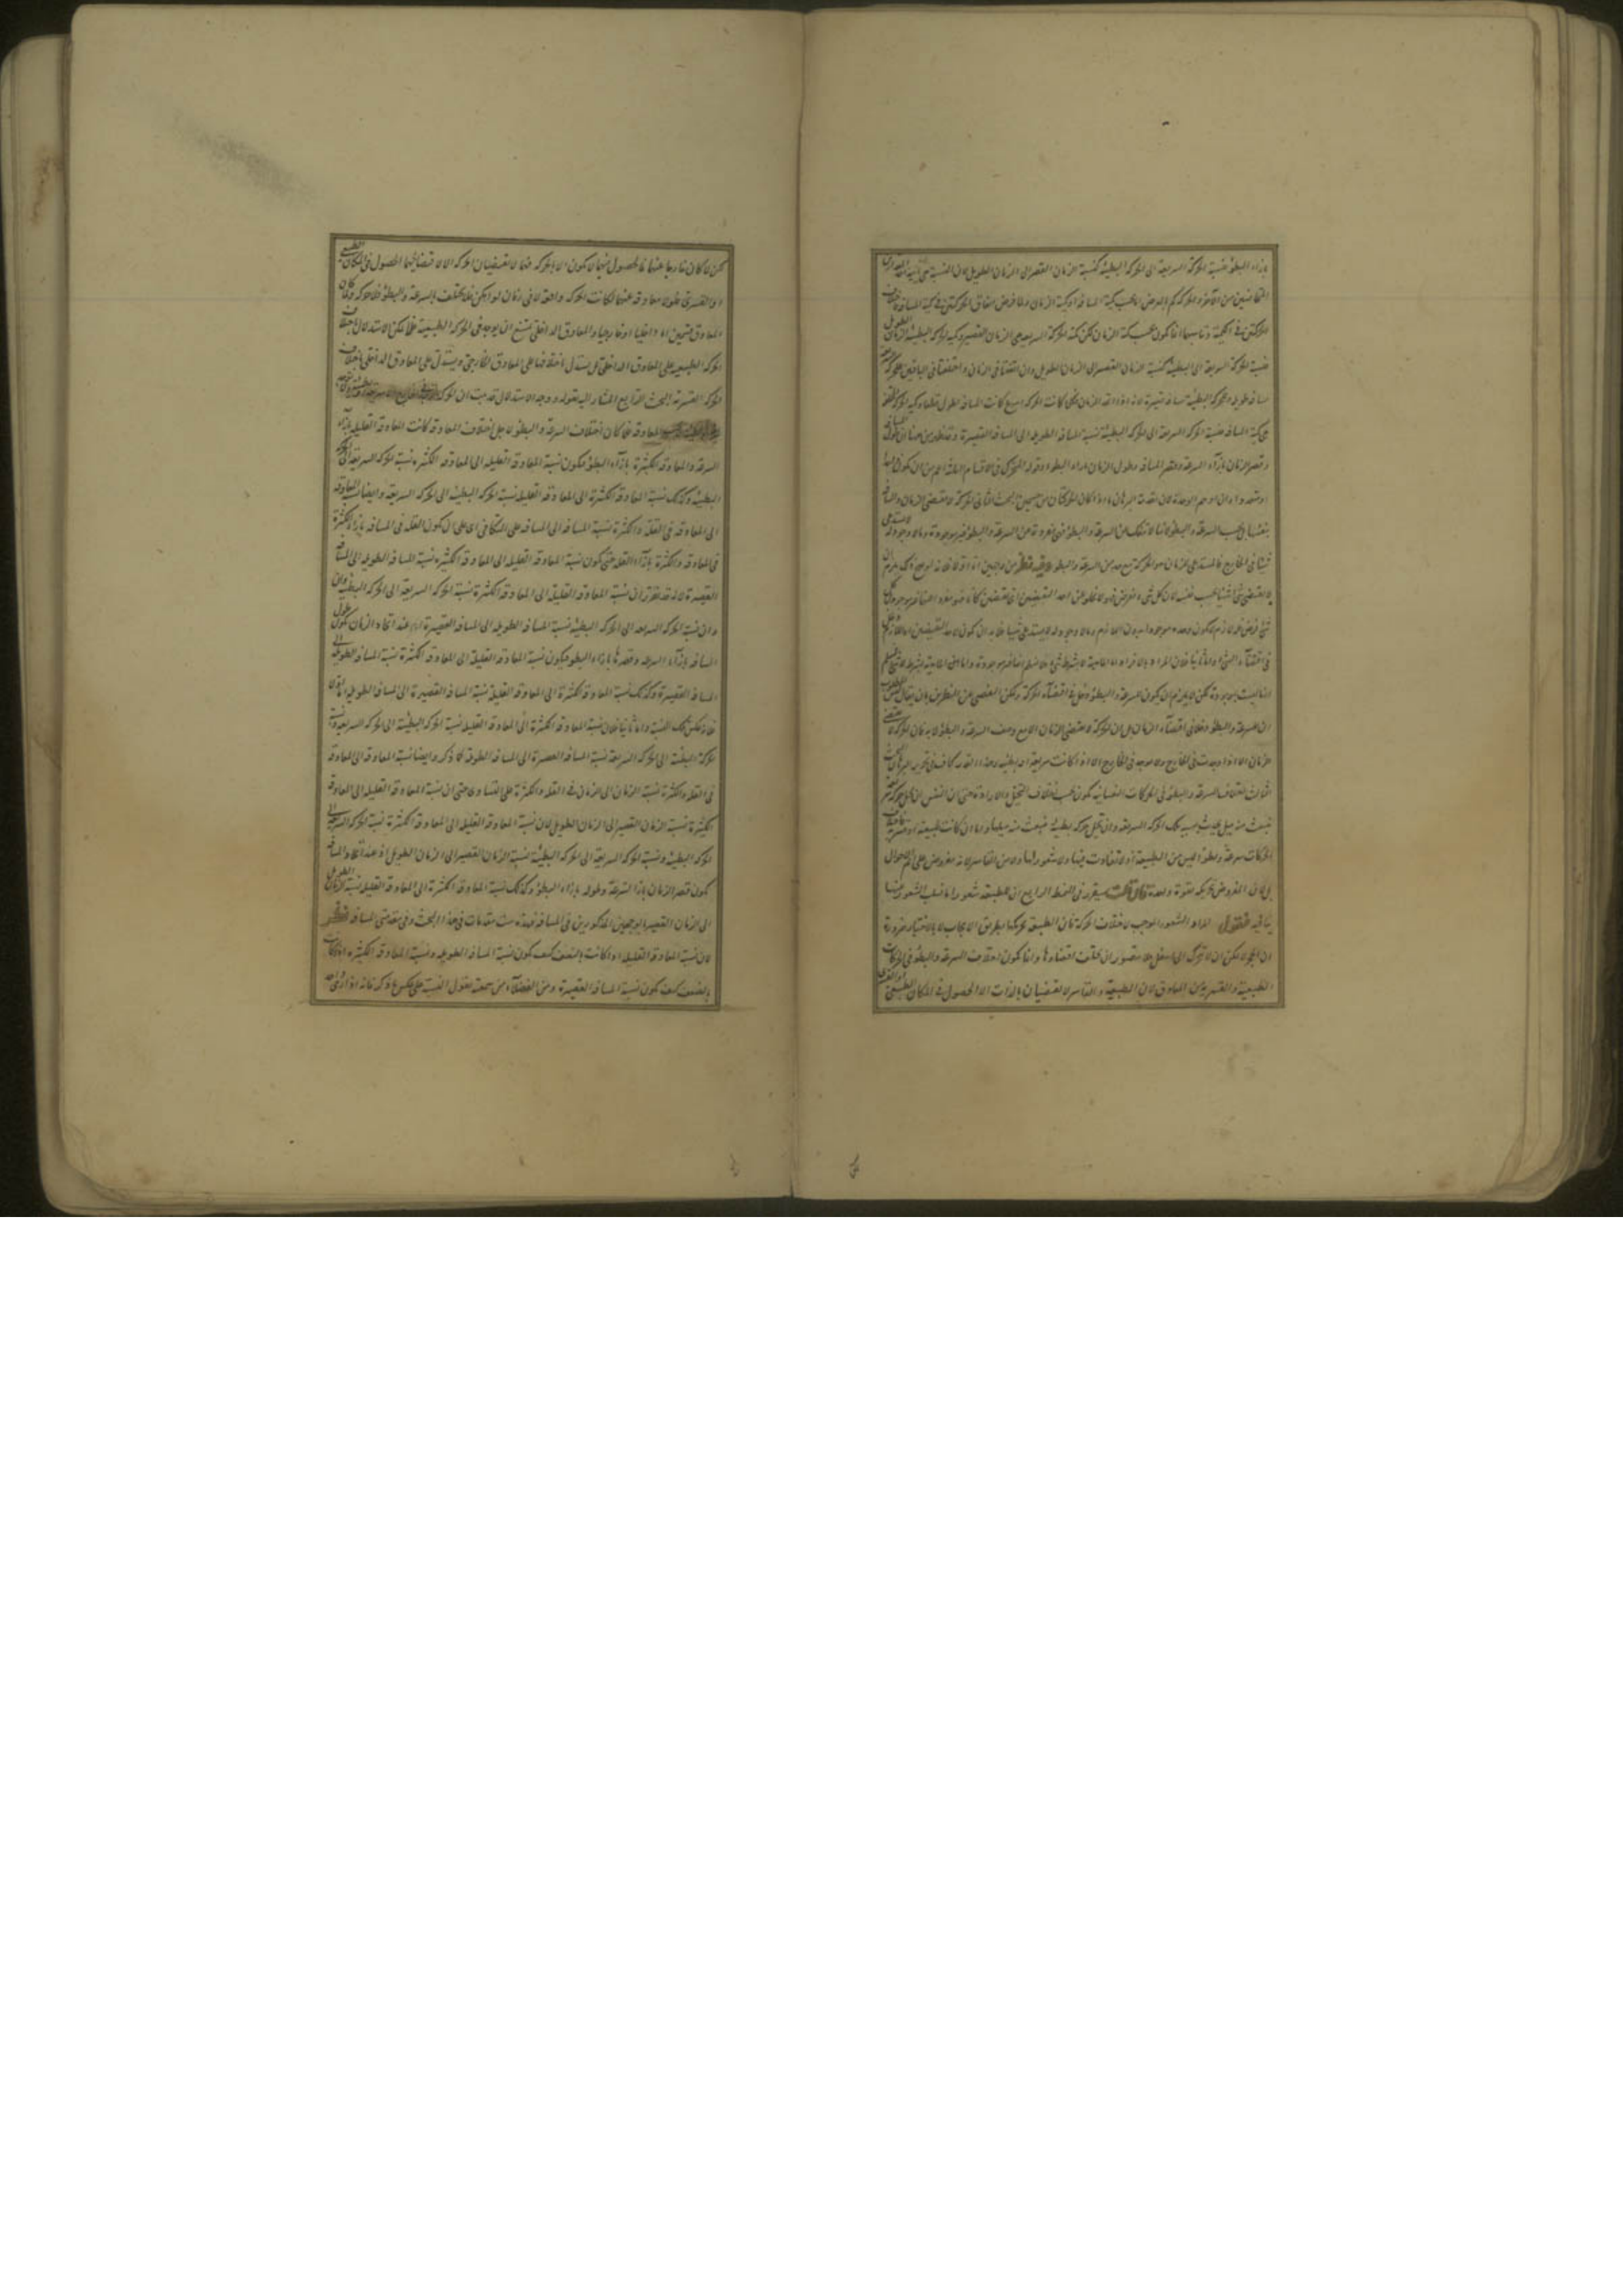 بازاء البطؤ فنسبة الحركة السريعة الى الحركة البطيئة كنسبة الزمان القصير الى الزمان الطويل لان النسبة هى
المتجانسين من الآخر والحركة كم بالعرض اما بحسب كمية المسافة او كمية الزمان ولما فرض اتفاق الحركتين فى كمية المسافة
الحركتين فى الكمية وتناسبهما انما يكون بحسب كمية الزمان لكن كمية الحركة السريعة هى الزمان القصير وكمية الحركة البطيئة الزمان الطويل
فنسبة الحركة السريعة الى البطيئة كنسبة الزمان القصير الى الزمان الطويل وان اتفقتا فى الزمان واختلفتا فى الباقيين
مسافة طويلة والحركة البطيئة مسافة قصيرة لانه اذا اتحد الزمان فكلما كانت الحركة اسرع كانت المسافة اطول
هى كمية المسافة فنسبة الحركة السريعة الى الحركة البطيئة نسبة المسافة الطويلة الى المسافة القصيرة وقد ظهر من هذا ان طول المسافة
وقصر الزمان بازاء السرعة وقصر المسافة وطول الزمان بازاء البطؤ وقوله المحرك فى الاقسام الثلثة اعم من ان يكون
البحث الثانى الحركة لا تقتضى الزمان والمسافة
بنفسها بل بحسب السرعة والبطؤ لانها لا تنفك عن السرعة والبطؤ فهى مفردة عن السرعة والبطؤ غير موجودة وما لا وجود له لا يستدعى
شيئا فى الخارج فالمستدعى للزمان هو الحركة مع حد من السرعة والبطؤ وفيه نظر من وجهين اما اولا فلانه لو صح ذلك يلزم ان
لا يقتضى شئ شيئا بحسب نفسه لان كل شئ يفرض فهو لا يخلو عن احد النقيضين
شئ فرض فله لازم فيكون وحده موجودا بدون اللازم وما لا وجود له لا يستدعى شيئا فلا بد ان يكون لاحد النقيضين
فى اقتضاء الشئ واما ثانيا فلان المراد بالافراد اما الماهية لا بشرط شئ فلا نسلم انها غير موجودة واما الماهية بشرط لا شئ فنسلم
انها ليست بموجودة لكن لا يلزم ان يكون للسرعة والبطؤ دخل فى اقتضاء الحركة ويمكن التفصى عن النظرين بان يقال ليس المطلوب
ان للسرعة والبطؤ دخلا فى اقتضاء الزمان بل ان الحركة لا تقتضى الزمان الا مع وصف السرعة والبطؤ
البحث
الثالث اختلاف السرعة والبطؤ فى الحركات النفسانية يكون بحسب اختلاف التخيل والارادة حتى ان النفس
ينبعث منه ميل بحيث سببه تلك الحركة السريعة وان تخيل حركة بطيئة ينبعث منه ميلها واما ان كانت طبيعية او قسرية
الحركات سرعة وبطؤا ليس من الطبيعة اذ لا تفاوت فيها ولا شعور لها ولا من القاسر لانه مفروض على اتم الاحوال
بل لان المفروض تحريكه بقوة واحدة فان قلت سيقرر فى النمط الرابع ان للطبيعة شعورا ما فسلب الشعور عنها
ينافيه فنقول المراد الشعور الموجب لاختلاف الحركة فان الطبيعة تحريكها بطريق الايجاب لا بالاختيار ضرورة
ان الحجر لا يمكن ان لا يتحرك الى اسفل ولا يتصور ان يختلف اقتضاؤها وانما يكون اختلاف السرعة والبطؤ فى الحركات
الطبيعية والقسرية من المعاوق لان الطبيعة والقاسر لا يقتضيان بالذات الا الحصول فى المكان الطبيعى او القسرى
لكن لما كان خارجا عنهما فالحصول فيهما لا يكون الا بالحركة فهما لا يقتضيان الحركة الا لاقتضائهما الحصول فى المكان الطبيعى
او القسرى فلولا معاوقة عنهما لكانت الحركة واقعة لا فى زمان لو امكن فلا يختلف بالسرعة والبطؤ فلا حركة ولما كان
المعاوق قسمين اما داخليا او خارجيا والمعاوق الداخلى يمتنع ان يوجد فى الحركة الطبيعية فلم يمكن الاستدلال باختلاف
الحركة الطبيعية على المعاوق الداخلى بل يستدل باختلافها على المعاوق الخارجى ويستدل على المعاوق الداخلى باختلاف
الحركة القسرية البحث الرابع المشار اليه بقوله ووجه الاستدلال قد ثبت ان الحركة
المعاوقة فلما كان اختلاف السرعة والبطؤ لاجل اختلاف المعاوقة كانت المعاوقة القليلة بازاء
السرعة والمعاوقة الكثيرة بازاء البطؤ فيكون نسبة المعاوقة القليلة الى المعاوقة الكثيرة نسبة الحركة السريعة الى الحركة
البطيئة وكذلك نسبة المعاوقة الكثيرة الى المعاوقة القليلة نسبة الحركة البطيئة الى الحركة السريعة وايضا نسبة المعاوقة
الى المعاوقة فى القلة والكثرة نسبة المسافة الى المسافة على التكافى اى على ان يكون القلة فى المسافة بازاء الكثرة
فى المعاوقة والكثرة بازاء القلة حتى يكون نسبة المعاوقة القليلة الى المعاوقة الكثيرة نسبة المسافة الطويلة الى المسافة
القصيرة لانه قد تقرر ان نسبة المعاوقة القليلة الى المعاوقة الكثيرة نسبة الحركة السريعة الى الحركة البطيئة
وان نسبة الحركة السريعة الى الحركة البطيئة نسبة المسافة الطويلة الى المسافة القصيرة اى عند اتحاد الزمان يكون طول
المسافة بازاء السرعة وقصرها بازاء البطؤ فيكون نسبة المعاوقة القليلة الى المعاوقة الكثيرة نسبة المسافة الطويلة الى
المسافة القصيرة وكذلك نسبة المعاوقة الكثيرة الى المعاوقة القليلة نسبة المسافة القصيرة الى المسافة الطويلة اما اولا
فلانعكاس تلك النسبة واما ثانيا فلان نسبة المعاوقة الكثيرة الى المعاوقة القليلة نسبة الحركة البطيئة الى الحركة السريعة ونسبة
الحركة البطيئة الى الحركة السريعة نسبة المسافة القصيرة الى المسافة الطويلة لما ذكر وايضا نسبة المعاوقة الى المعاوقة
فى القلة والكثرة نسبة الزمان الى الزمان فى القلة والكثرة على التساوى حتى ان نسبة المعاوقة القليلة الى المعاوقة
الكثيرة نسبة الزمان القصير الى الزمان الطويل لان نسبة المعاوقة القليلة الى المعاوقة الكثيرة نسبة الحركة السريعة الى
الحركة البطيئة ونسبة الحركة السريعة الى الحركة البطيئة نسبة الزمان القصير الى الزمان الطويل اذ عند اتحاد المسافة
يكون قصر الزمان بازاء السرعة وطوله بازاء البطؤ وكذلك نسبة المعاوقة الكثيرة الى المعاوقة القليلة نسبة الزمان الطويل
الى الزمان القصير بالوجهين المذكورين فى المسافة فهذه ست مقدمات فى هذا البحث وفى مقدمتى المسافة
لان نسبة المعاوقة القليلة اذا كانت بالنصف كيف يكون نسبة المسافة الطويلة ونسبة المعاوقة الكثيرة اذا كانت
بالضعف كيف يكون نسبة المسافة القصيرة ومن الفضلاء من سمعته يقول النسبة على عكس ما ذكر فانه